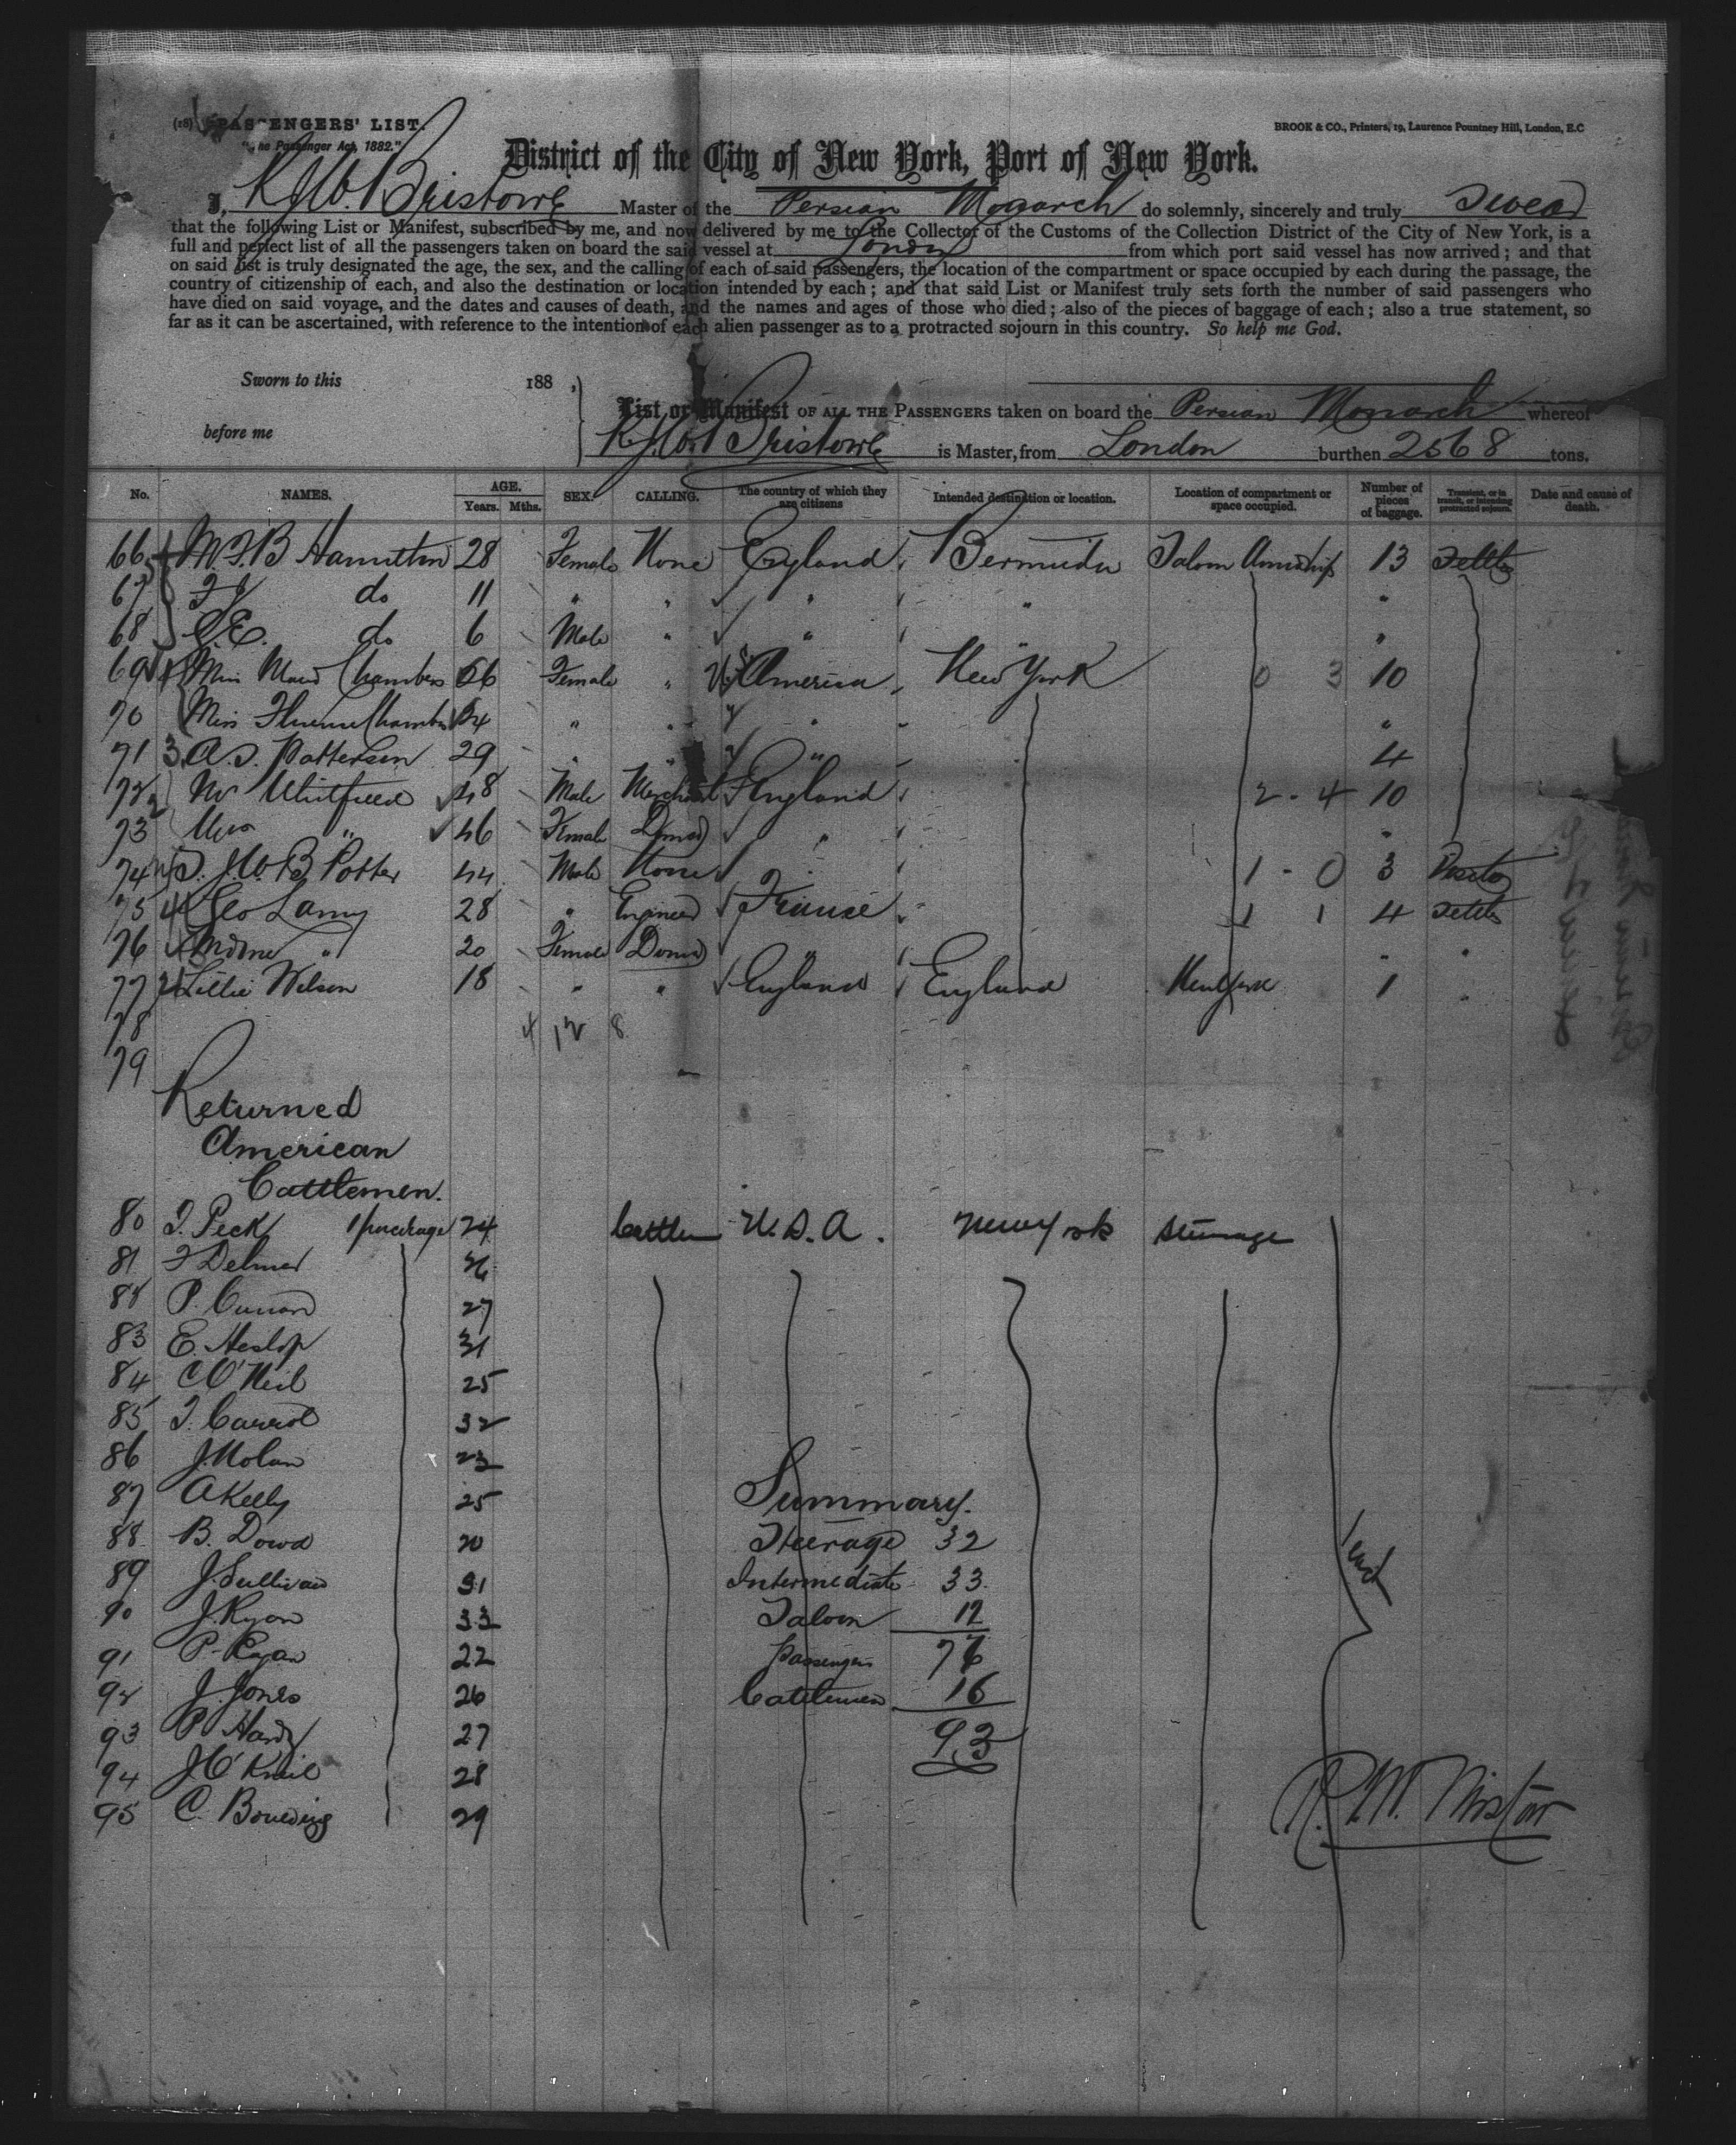 (18) PASSENGERS' LIST.
"The Passenger Act, 1882."
BROOK & CO., Printers, 19, Laurence Pountney Hill, London, E.C
District of the City of New York, Port of New York.
I, Bristowe Master of the Persian Monarch do solemnly, sincerely and truly Swear
that the following List or Manifest, subscribed by me, and now delivered by me to the Collector of the Customs of the Collection District of the City of New York, is a
full and perfect list of all the passengers taken on board the said vessel at London from which port said vessel has now arrived; and that
on said list is truly designated the age, the sex, and the calling of each of said passengers, the location of the compartment or space occupied by each during the passage, the
country of citizenship of each, and also the destination or location intended by each; and that said List or Manifest truly sets forth the number of said passengers who
have died on said voyage, and the dates and causes of death, and the names and ages of those who died; also of the pieces of baggage of each; also a true statement, so
far as it can be ascertained, with reference to the intention of each alien passenger as to a protracted sojourn in this country. So help me God.
Sworn to this 188 ,
before me
List or Manifest OF ALL THE PASSENGERS taken on board the Persian Monarch whereof
Bristowe is Master, from London burthen 2568 tons.
No. NAMES. AGE. Years. Mths. SEX. CALLING. The country of which they are citizens Intended destination or location. Location of compartment or space occupied. Number of pieces of baggage. Transient, or in transit, or intending protracted sojourn. Date and cause of death.
66 Hamilton 28 Female None England Bermuda Saloon Amidships 13 Settle
67 do 11 " " " " "
68 do 6 Male " " " "
69 Miss Maud Chambers Female " U.S America New York 0 3 10
70 Miss Chambers " " " "
71 A.S. Patterson 29 " " " 4
72 Mr Whitfield 48 Male Merchant England 2 - 4 10
73 Mrs " 46 Female " "
74 Potter 44 Male None " 1 - 0 3 Visitor
75 Geo Lamy 28 " Engineer France 1 1 4 Settle
76 " 20 Female " " "
77 Lillie Wilson 18 " " England England New York 1 "
78 4 12 8
79
Returned
American
Cattlemen.
80 Peck 24 U.S.A. New York Steerage
81 Delmar
82 P. 27
83 E. Heslop 31
84 C O'Neil 25
85 Carrol 32
86 J. Nolan 23
87 A Kelly 25
88 B. Dowd 20
89 J. Sullivan 31
90 J. Ryan 33
91 P. 22
92 J. Jones 26
93 P Hardy 27
94 J O' 28
95 C. 29
Summary.
Steerage 32
Intermediate 33
Saloon 12
Passengers
Cattlemen 16
93